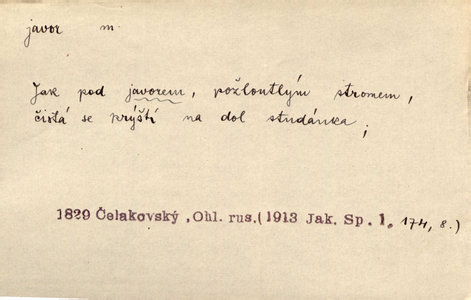 javor m.
Jak pod javorem, požloutlým stromem,
čistá se prýští na dol studánka;
1829 Čelakovský ,Ohl. rus.(1913 Jak. Sp. 1. 174, 8.)